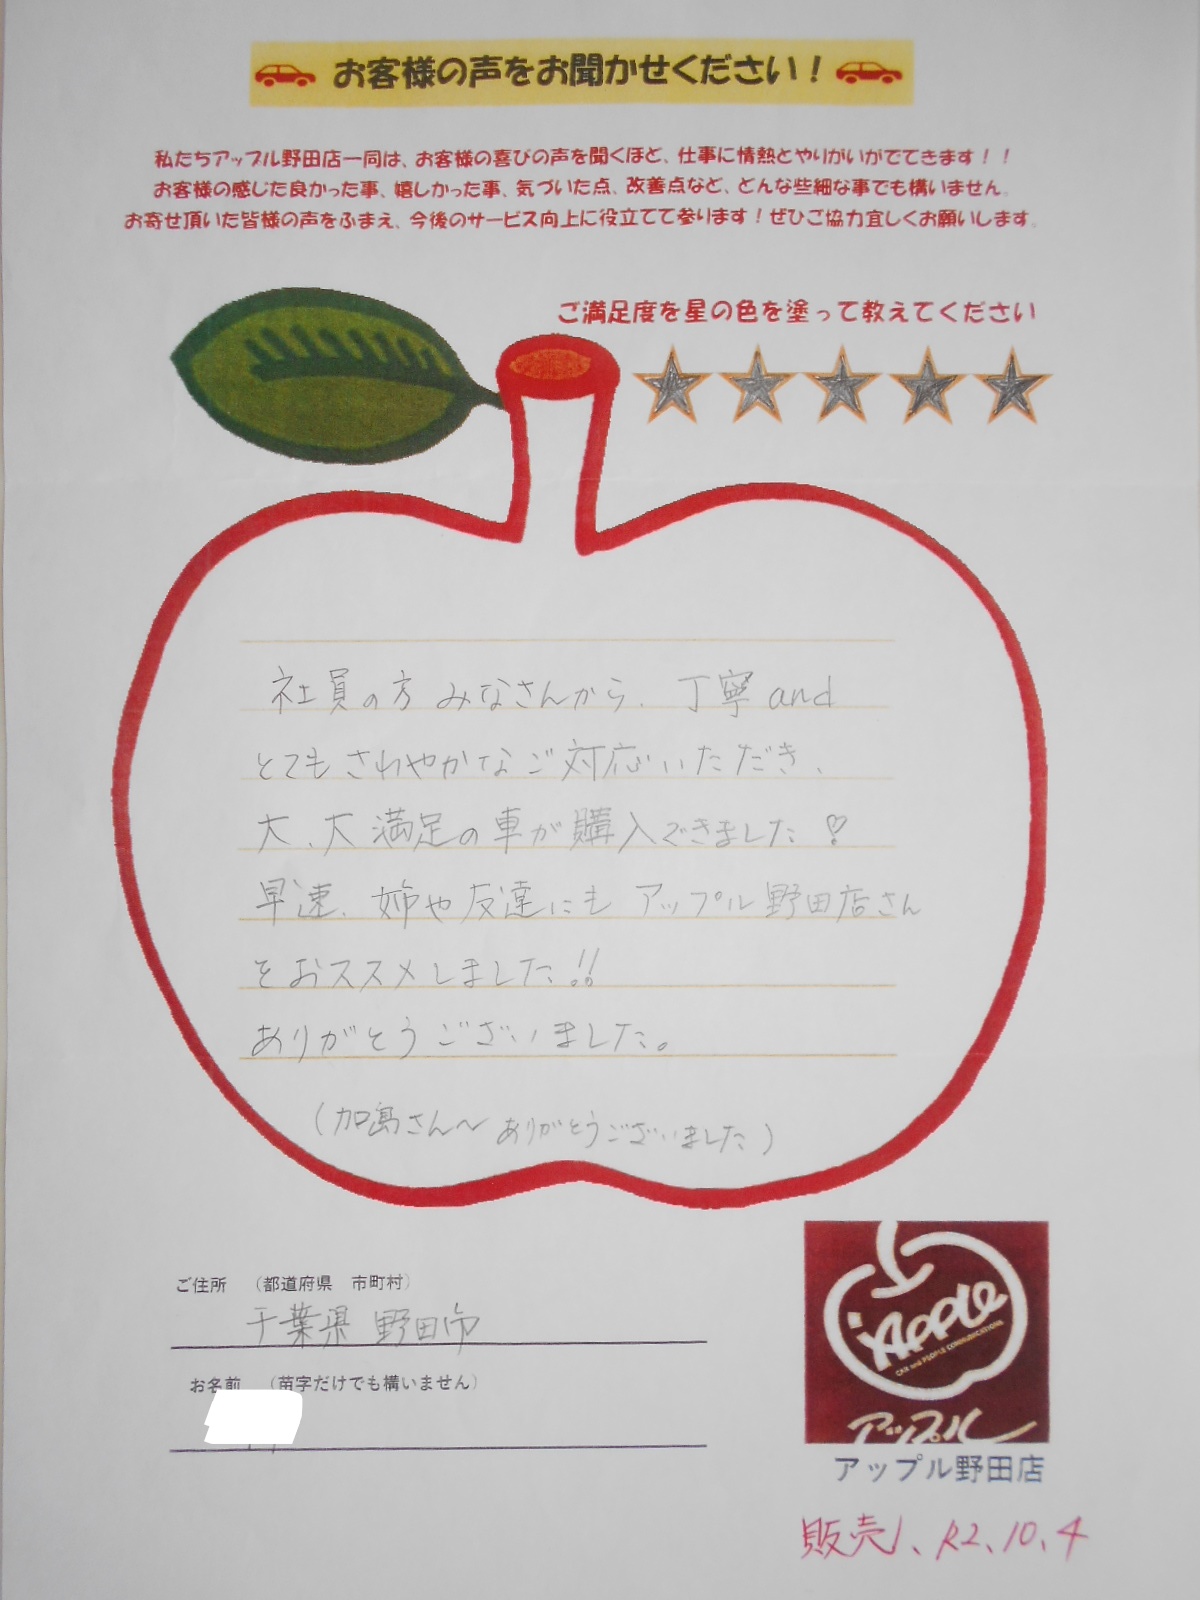 お客様の声をお聞かせください！
私たちアップル野田店一同は、お客様の喜びの声を聞くほど、仕事に情熱とやりがいがでてきます！！
お客様の感じた良かった事、嬉しかった事、気づいた点、改善点など、どんな些細な事でも構いません。
お寄せ頂いた皆様の声をふまえ、今後のサービス向上に役立てて参ります！ぜひご協力宜しくお願いします。
ご満足度を星の色を塗って教えてください
社員の方みなさんから、丁寧and
とてもさわやかなご対応いただき、
大、大満足の車が購入できました♡
早速、姉や友達にもアップル野田店さん
をおススメしました!!
ありがとうございました。
(加島さん〜ありがとうございました)
ご住所　（都道府県　市町村）
千葉県 野田市
お名前　（苗字だけでも構いません）
Apple
CAR and PEOPLE COMMUNICATIONS
アップル
アップル野田店
販売1、R2、10、4